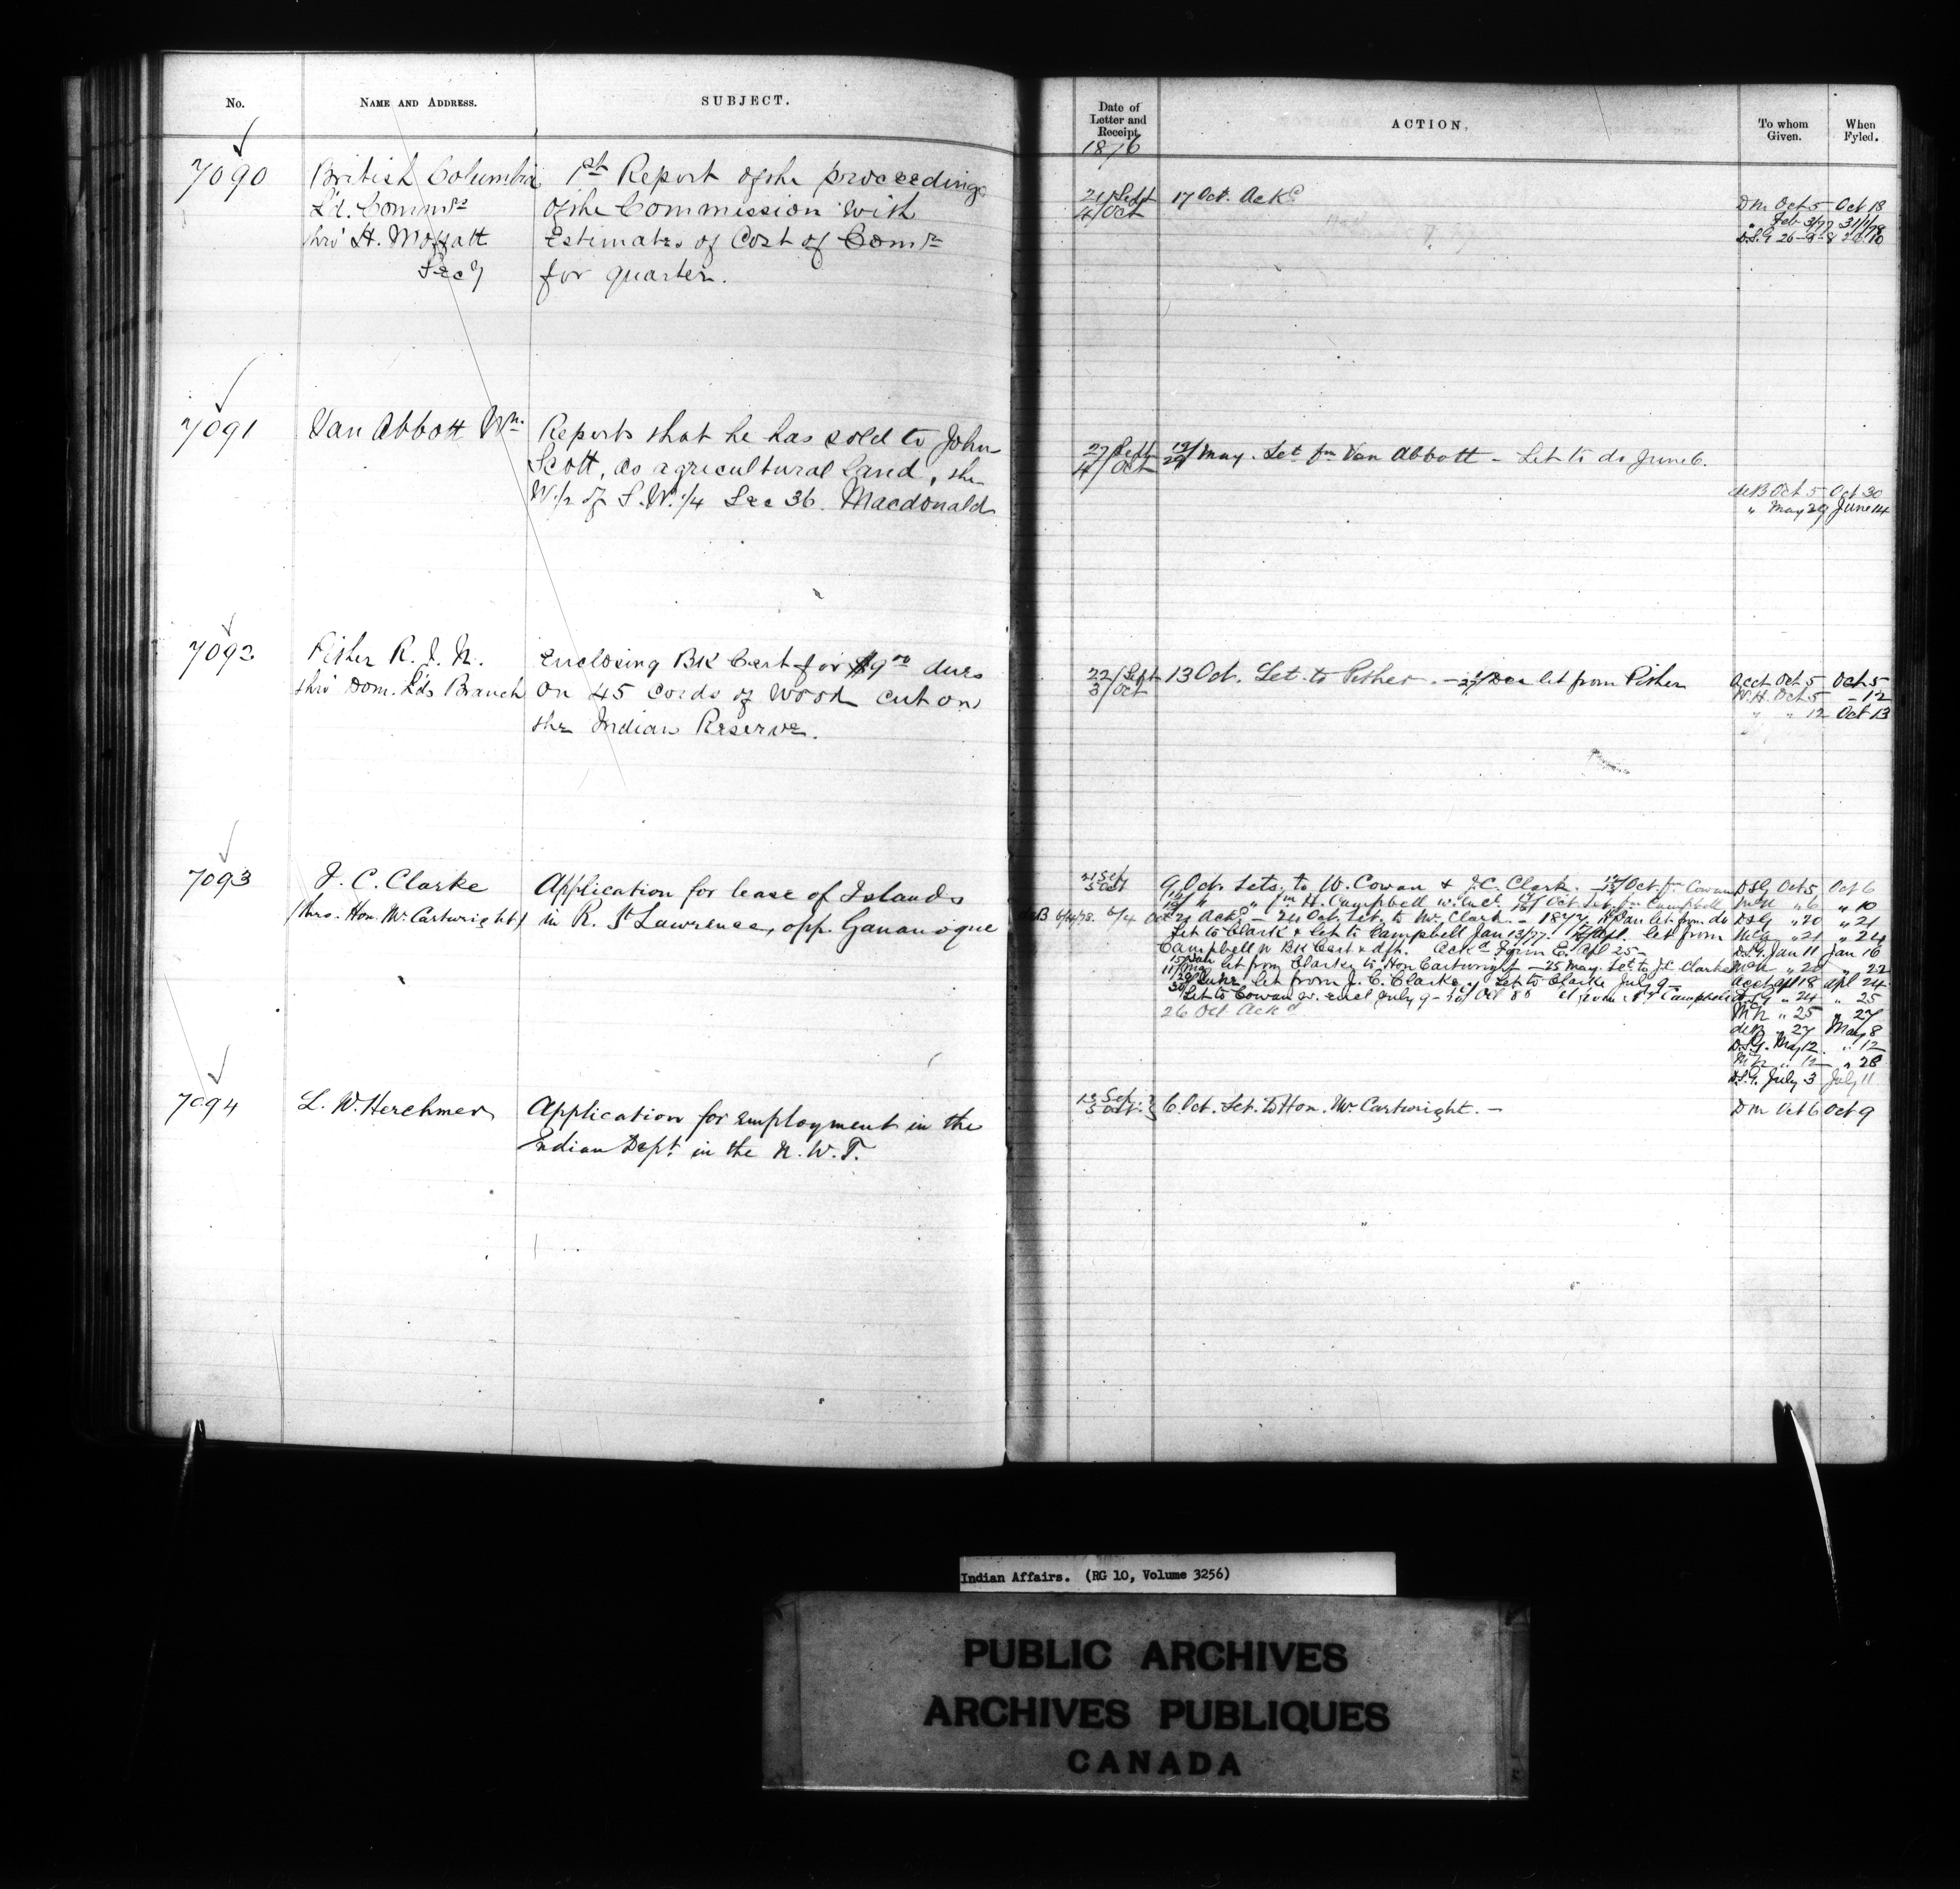 No. NAME AND ADDRESS. SUBJECT.
7090 British Columbia 1st Report of the proceedings
Ld. Commrs of the Commission with
thro' H. Moffatt Estimates of Cost of Comn
Secy for quarter.
7091 Van Abbott Wm. Reports that he has sold to John
Scott, as agricultural land, the
W.1/2 of S.W.1/4 Sec 36. Macdonald
7092 Fisher R. J. N. Enclosing BK Cert for $9.00 dues
thro' Dom. Lds Branch on 45 cords of wood cut on
the Indian Reserve.
7093 J. C. Clarke Application for lease of Islands
(thro. Hon. Mr. Cartwright) in R. St Lawrence, opp. Gananoque
7094 L. W. Herchmer Application for Employment in the
Indian Dept. in the N. W. T.
Date of Letter and Receipt. ACTION. To whom Given. When Fyled.
1876
21/Sept 17 Oct. Ackd Dm Oct 5 Oct 18
4/Oct
" Feb 3/77 31/1/78
D.S.G 26-9-8
27/Sept 19/22 May. Let fm Van Abbott - Let to do June 6.
4/Oct
deB Oct 5 Oct 30
" May 29 June 14
22/Sept 13 Oct. Let. to Fisher. - Dec let from Fisher Acct Oct 5 Oct 5
3/Oct W.H. Oct 5 - 12
" " 12 Oct 13
21 Sep 9 Oct. Lets. to W. Cowan & J.C. Clark. - Oct fm Cowan D.S.G Oct 5 Oct 6
5 Oct " " fm H. Campbell w. encl. Oct. Let. fm Campbell " 6 " 10
6/4/78. 6/4 Oct 21 Ackd - 24 Oct. Let. to Mr. Clark. - 1877. Jan let from do D.S.G " 20 " 21
Let to Clark & let to Campbell Jan 13/77. Apl. let from " 21 " 24
Campbell w BK Cert & dft. Ackd Form E. Apl 25 - D.S.G. Jan 11 Jan 16
let from Clarke to Hon Cartwright - 25 May. Let. to J.C. Clarke " 20 " 22
June let from J. C. Clarke. Let to Clarke July 9 - Acct Apl 18 Apl 24
Let to Cowan w. encl July 9 - Campbell D.S.G " 24 " 25
26 Oct Ackd " 25 " 27
deB " 27 May 8
D.S.G. May 12 " 12
" 12 " 28
D.S.G. July 3 July 11
12 Sep. 6 Oct. Let. to Hon. Mr. Cartwright. - Dm Oct 6 Oct 9
5 Oct.
Indian Affairs. (RG 10, Volume 3256)
PUBLIC ARCHIVES
ARCHIVES PUBLIQUES
CANADA